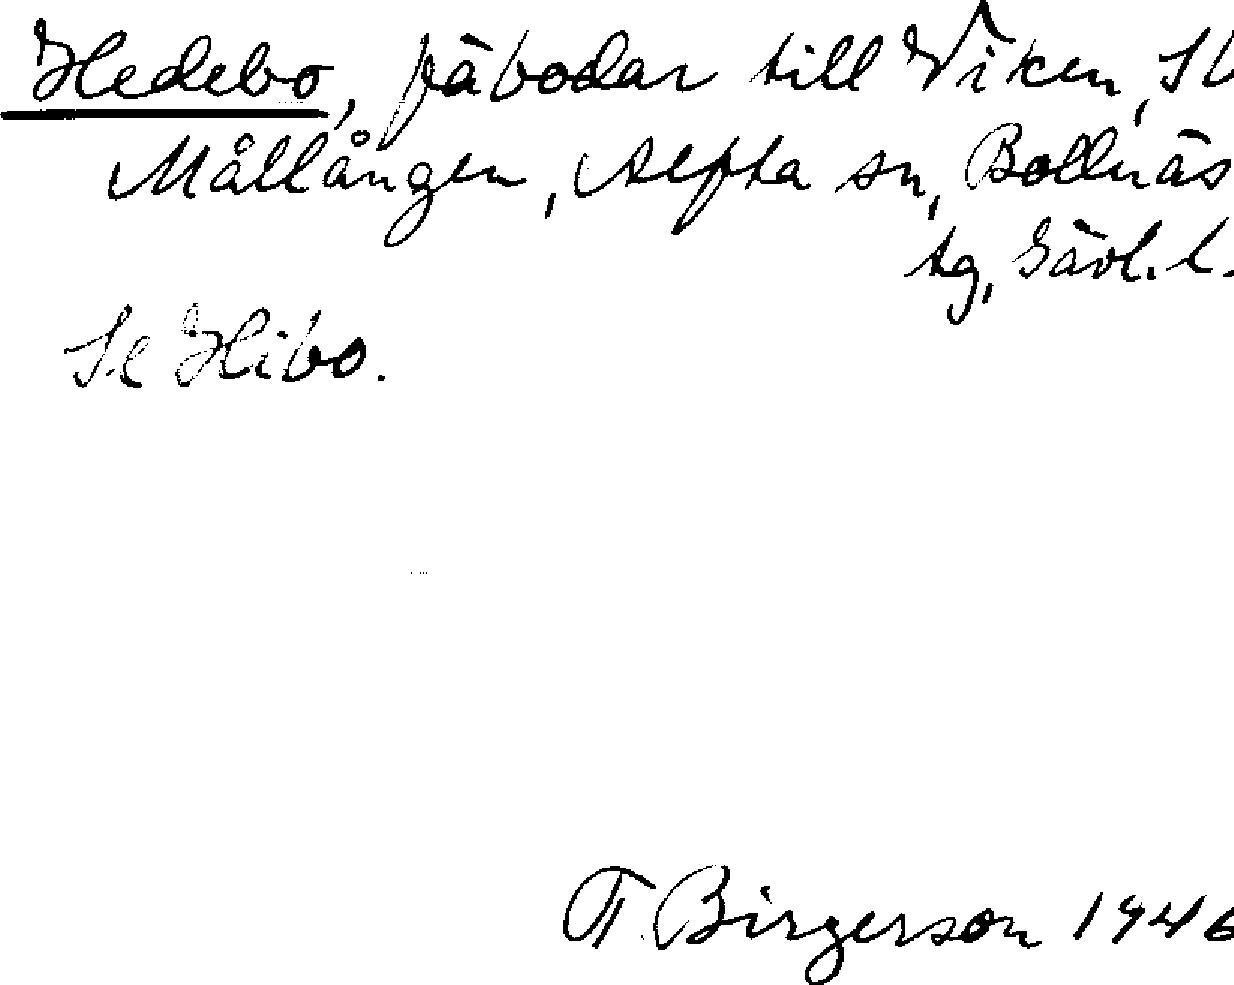 Hedebo, fäbodar till Viken, St
Mållången, Alfta sn, Bollnäs
tg, Gävl. l.
Se Hibo.
T. Birgerson 1946